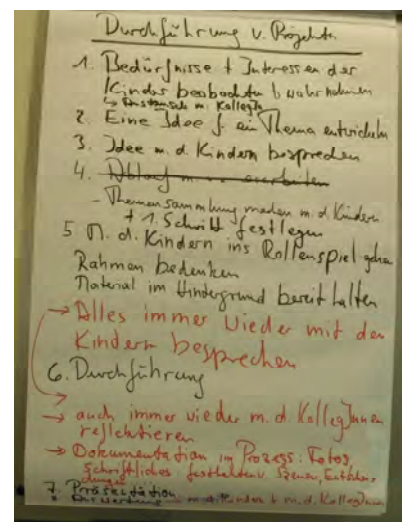 Durchführung v. Projekten
1. Bedürfnisse + Interessen der
Kinder beobachten & wahrnehmen
↳ Austausch m. KollegIn
2. Eine Idee f. ein Thema entwickeln
3. Idee m. d. Kindern besprechen
4. Ablauf erarbeiten
- Themensammlung machen m. d. Kindern
+ 1. Schritt festlegen
5 M. d. Kindern ins Rollenspiel gehen
Rahmen bedenken
Material im Hintergrund bereit halten
→ Alles immer wieder mit den
Kindern besprechen
6. Durchführung
→ auch immer wieder m. d. KollegInnen
reflektieren
→ Dokumentation im Prozess: Fotos,
schriftliches festhalten v. Szenen,
7. Präsentation
m. d. Kindern + m. d. KollegInnen